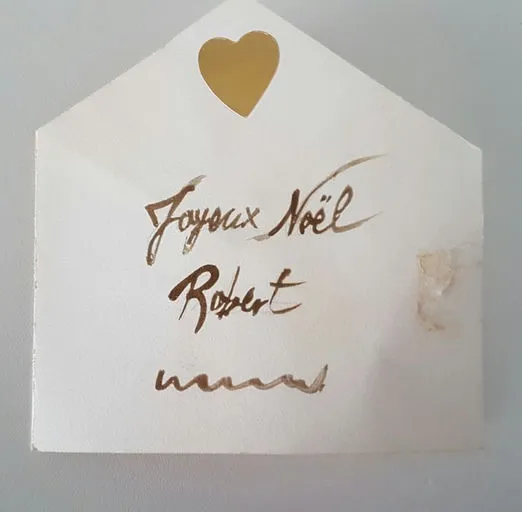 Joyeux Noël
Robert